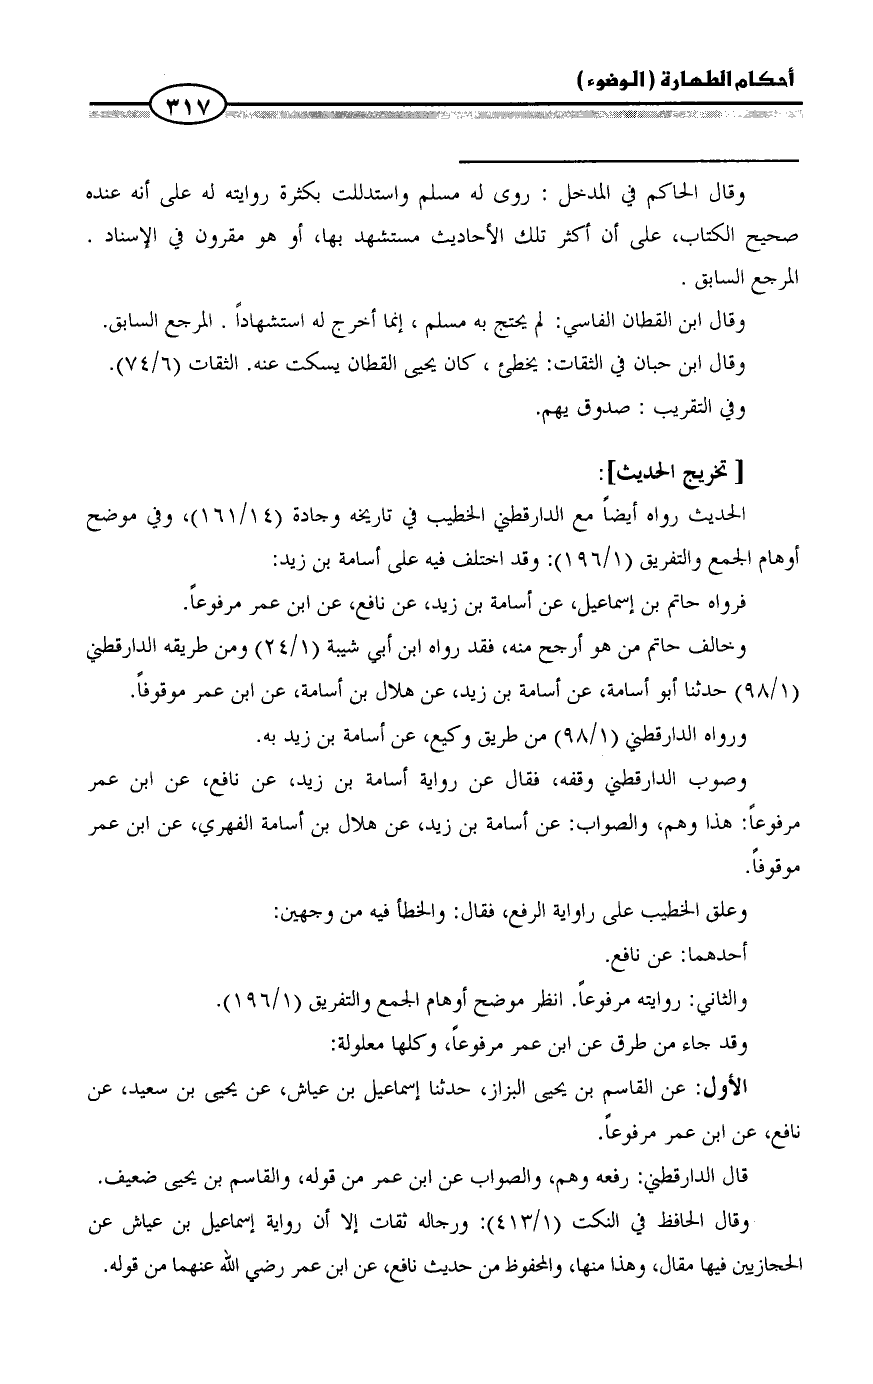 أحكام الطهارة (الوضوء)
٣١٧
وقال الحاكم في المدخل : روى له مسلم واستدللت بكثرة روايته له على أنه عنده
صحيح الكتاب، على أن أكثر تلك الأحاديث مستشهد بها، أو هو مقرون في الإسناد .
المرجع السابق .
وقال ابن القطان الفاسي: لم يحتج به مسلم ، إنما أخرج له استشهاداً . المرجع السابق.
وقال ابن حبان في الثقات: يخطئ ، كان يحيى القطان يسكت عنه. الثقات (٧٤/٦).
وفي التقريب : صدوق يهم.
[ تخريج الحديث]:
الحديث رواه أيضاً مع الدارقطني الخطيب في تاريخه وجادة (١٦١/١٤)، وفي موضح
أوهام الجمع والتفريق (١٩٦/١): وقد اختلف فيه على أسامة بن زيد:
فرواه حاتم بن إسماعيل، عن أسامة بن زيد، عن نافع، عن ابن عمر مرفوعاً.
وخالف حاتم من هو أرجح منه، فقد رواه ابن أبي شيبة (٢٤/١) ومن طريقه الدارقطني
(٩٨/١) حدثنا أبو أسامة، عن أسامة بن زيد، عن هلال بن أسامة، عن ابن عمر موقوفاً.
ورواه الدارقطني (٩٨/١) من طريق وكيع، عن أسامة بن زيد به.
وصوب الدارقطني وقفه، فقال عن رواية أسامة بن زيد، عن نافع، عن ابن عمر
مرفوعاً: هذا وهم، والصواب: عن أسامة بن زيد، عن هلال بن أسامة الفهري، عن ابن عمر
موقوفاً.
وعلق الخطيب على راواية الرفع، فقال: والخطأ فيه من وجهين:
أحدهما: عن نافع.
والثاني: روايته مرفوعاً. انظر موضح أوهام الجمع والتفريق (١٩٦/١).
وقد جاء من طرق عن ابن عمر مرفوعاً، وكلها معلولة:
الأول: عن القاسم بن يحيى البزاز، حدثنا إسماعيل بن عياش، عن يحيى بن سعيد، عن
نافع، عن ابن عمر مرفوعاً.
قال الدارقطني: رفعه وهم، والصواب عن ابن عمر من قوله، والقاسم بن يحيى ضعيف.
وقال الحافظ في النكت (٤١٣/١): ورجاله ثقات إلا أن رواية إسماعيل بن عياش عن
الحجازيين فيها مقال، وهذا منها، والمحفوظ من حديث نافع، عن ابن عمر رضي الله عنهما من قوله.